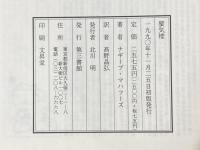 蜃気楼
一九九〇年十一月二五日初版発行
定価 二五七五円(二五〇〇円+税七五円)
著者 ナギーブ・マハフーズ
訳者 高野晶弘
発行者 北川 明
発行 第三書館
住所 東京都新宿区大久保
電話
印刷